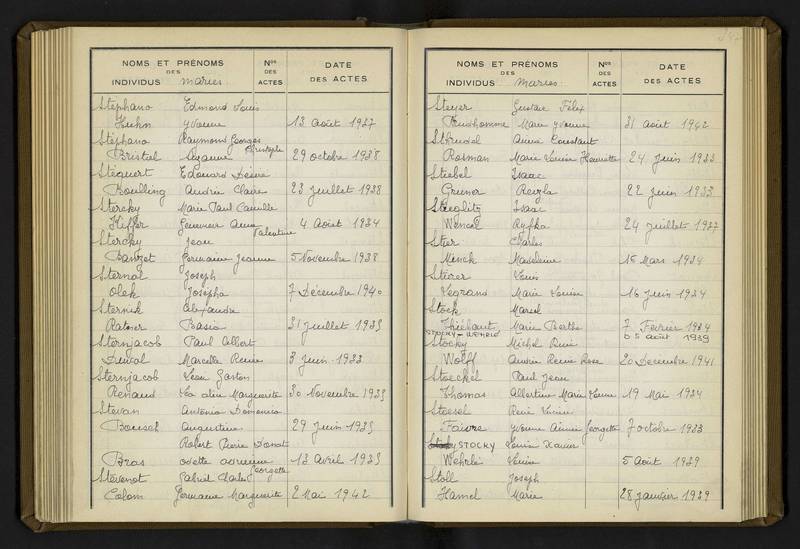 NOMS ET PRÉNOMS Nos DATE
DES DES
INDIVIDUS mariés ACTES DES ACTES
Stéphano Edmond Louis
Kuhn Yvonne 13 Août 1927
Stéphano Raymond Georges
Christophe
Bristiel Suzanne 29 octobre 1938
Stéquert Edouard Désiré
Boulling Andrée Claire 23 Juillet 1938
Stercky Marie Paul Camille
Kiffer Geneviève Anna 4 Août 1934
Valentine
Stercky Jean
Banzet Germaine Jeanne 5 Novembre 1938
Sternal Joseph
Olek Josépha 7 Décembre 1940
Sternik Alexandre
Ratner Basia 31 Juillet 1935
Sternjacob Paul Albert
Duval Marcelle Renée 3 Juin 1933
Sternjacob Léon Gaston
Renaud Marguerite 30 Novembre 1935
Stevan Antonio Domenico
Augustine 29 Juin 1935
Robert Pierre Donat
Bras Odette 13 Avril 1935
Georgette
Stévenot Gabriel Charles
Colom Germaine Marguerite 2 Mai 1942
NOMS ET PRÉNOMS Nos DATE
DES DES
INDIVIDUS mariés ACTES DES ACTES
Steyer Gustave Félix
Prudhomme Marie Yvonne 31 Août 1942
Anna Constant
Rosman Marie Louise Henriette 24 Juin 1933
Stiebel Isaac
Gruner Reizla 22 Juin 1933
Stieglitz Isaac
Wencel Ryfka 24 Juillet 1937
Stier Charles
Minck Madeleine 15 Mars 1934
Stierer Louis
Legrand Marie Louise 16 Juin 1934
Stock Marcel
Thiébaut Marie Berthe 7 Février 1934
STOCKY - WEHRLÉ 5 août 1939
Stocky Michel René
Wolff Andrée Renée Rose 20 Décembre 1941
Stoeckel Paul Jean
Thomas Albertine Marie Jeanne 19 Mai 1934
Stoesel René Lucien
Faivre Yvonne Aimée Georgette 7 octobre 1933
STOCKY Louis Xavier
Wehrlé Louise 5 Août 1939
Stoll Joseph
Hamel Marie 28 Janvier 1939